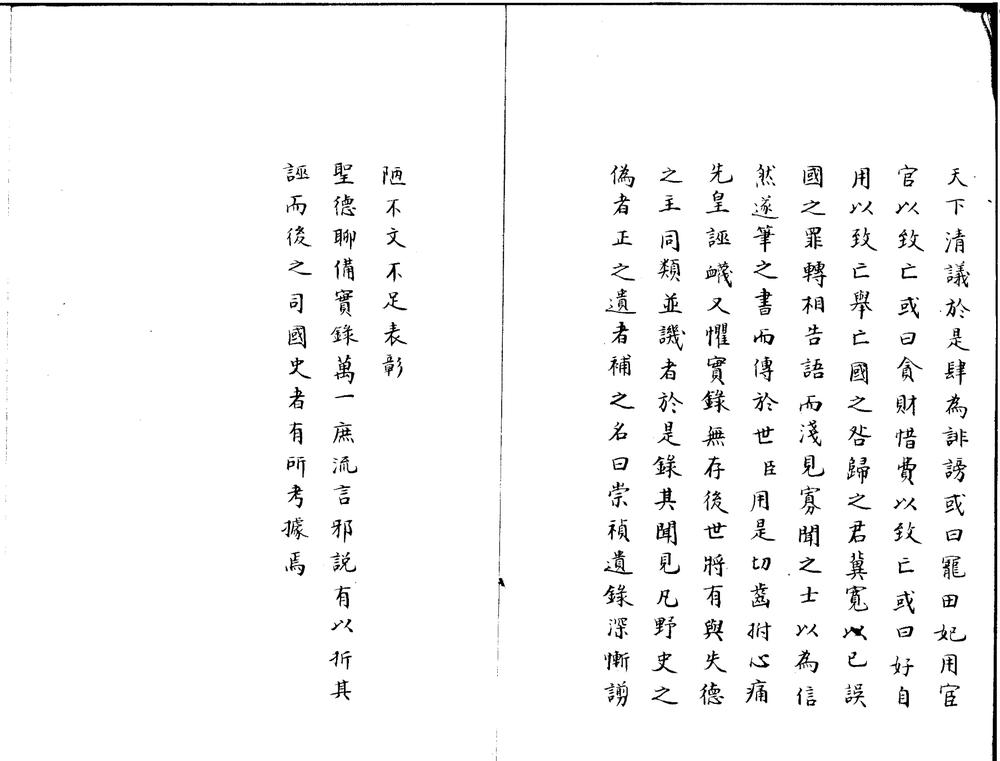 天下清議於是肆為誹謗或曰寵田妃用宦
官以致亡或曰貪財惜費以致亡或曰好自
用以致亡舉亡國之咎歸之君冀寬以已誤
國之罪轉相告語而淺見寡聞之士以為信
然遂筆之書而傳於世臣用是切齒拊心痛
先皇誣衊又懼實錄無存後世將有與失德
之主同類並譏者於是錄其聞見凡野史之
偽者正之遺者補之名曰崇禎遺錄深慚謭
陋不文不足表彰
聖德聊備實錄萬一庶流言邪說有以折其
誣而後之司國史者有所考據焉